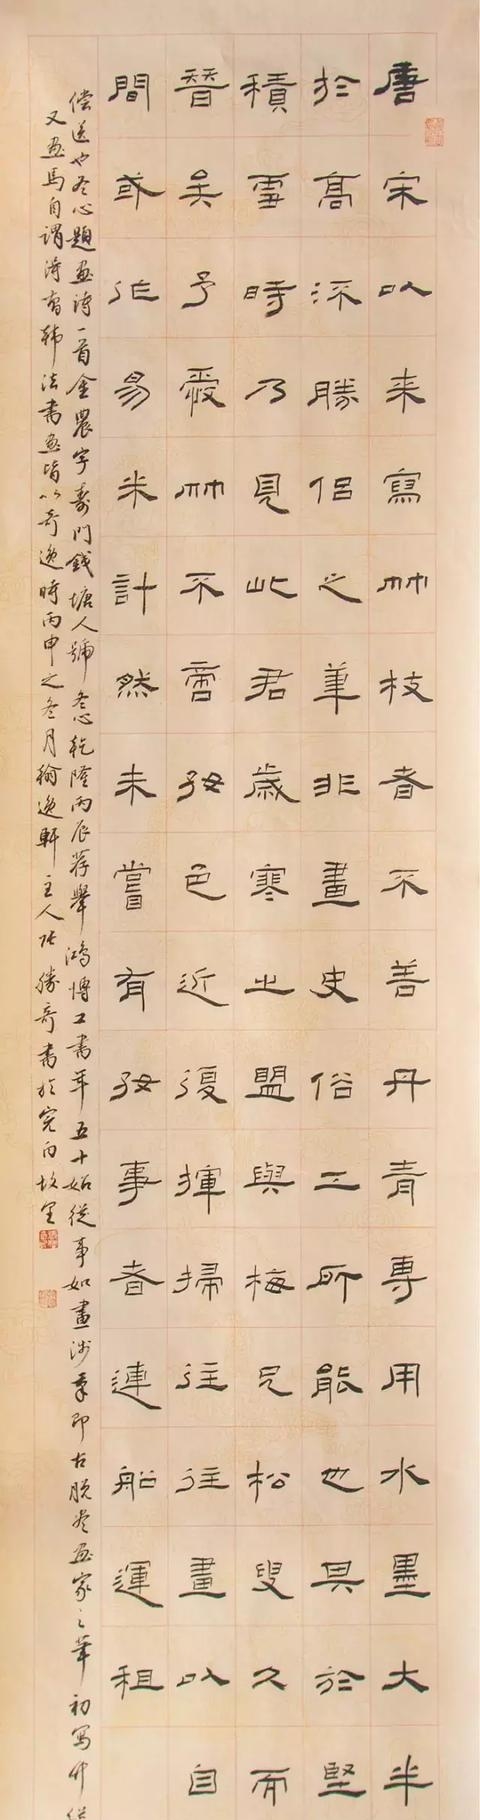 唐宋以来寫竹枝者不善丹青專用水墨大半
於高流勝侣之筆非畫史俗工所能也具於堅
積雪時乃見此君歲寒之盟與梅兄松叟久而
晉吴予愛竹不啻好色近復揮掃往往畫以自
間或作易米計然未嘗有好事者連船運租
偿送也冬心題画詩一首金農字壽門錢塘人號冬心乾隆丙辰荐舉鴻博工書年五十始從事如畫涉筆即古脱盡画家之筆初写竹
又画馬自謂得有韩法書画皆以奇逸時丙申之冬月翰逸軒主人張勝奇書於完白故里